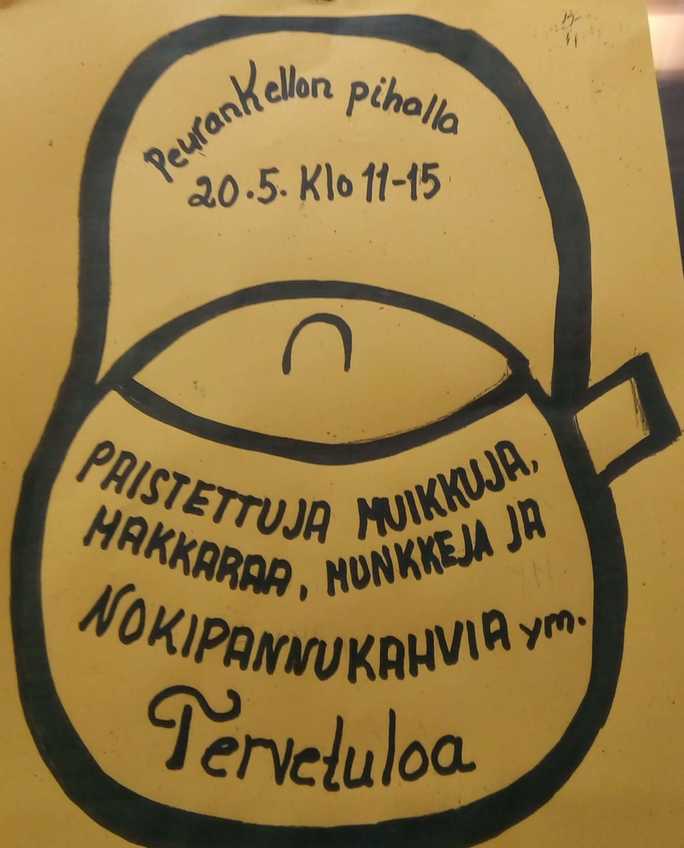 PeuranKellon pihalla
20.5. Klo 11-15
PAISTETTUJA MUIKKUJA,
MAKKARAA, MUNKKEJA JA
NOKIPANNUKAHVIA ym.
Tervetuloa